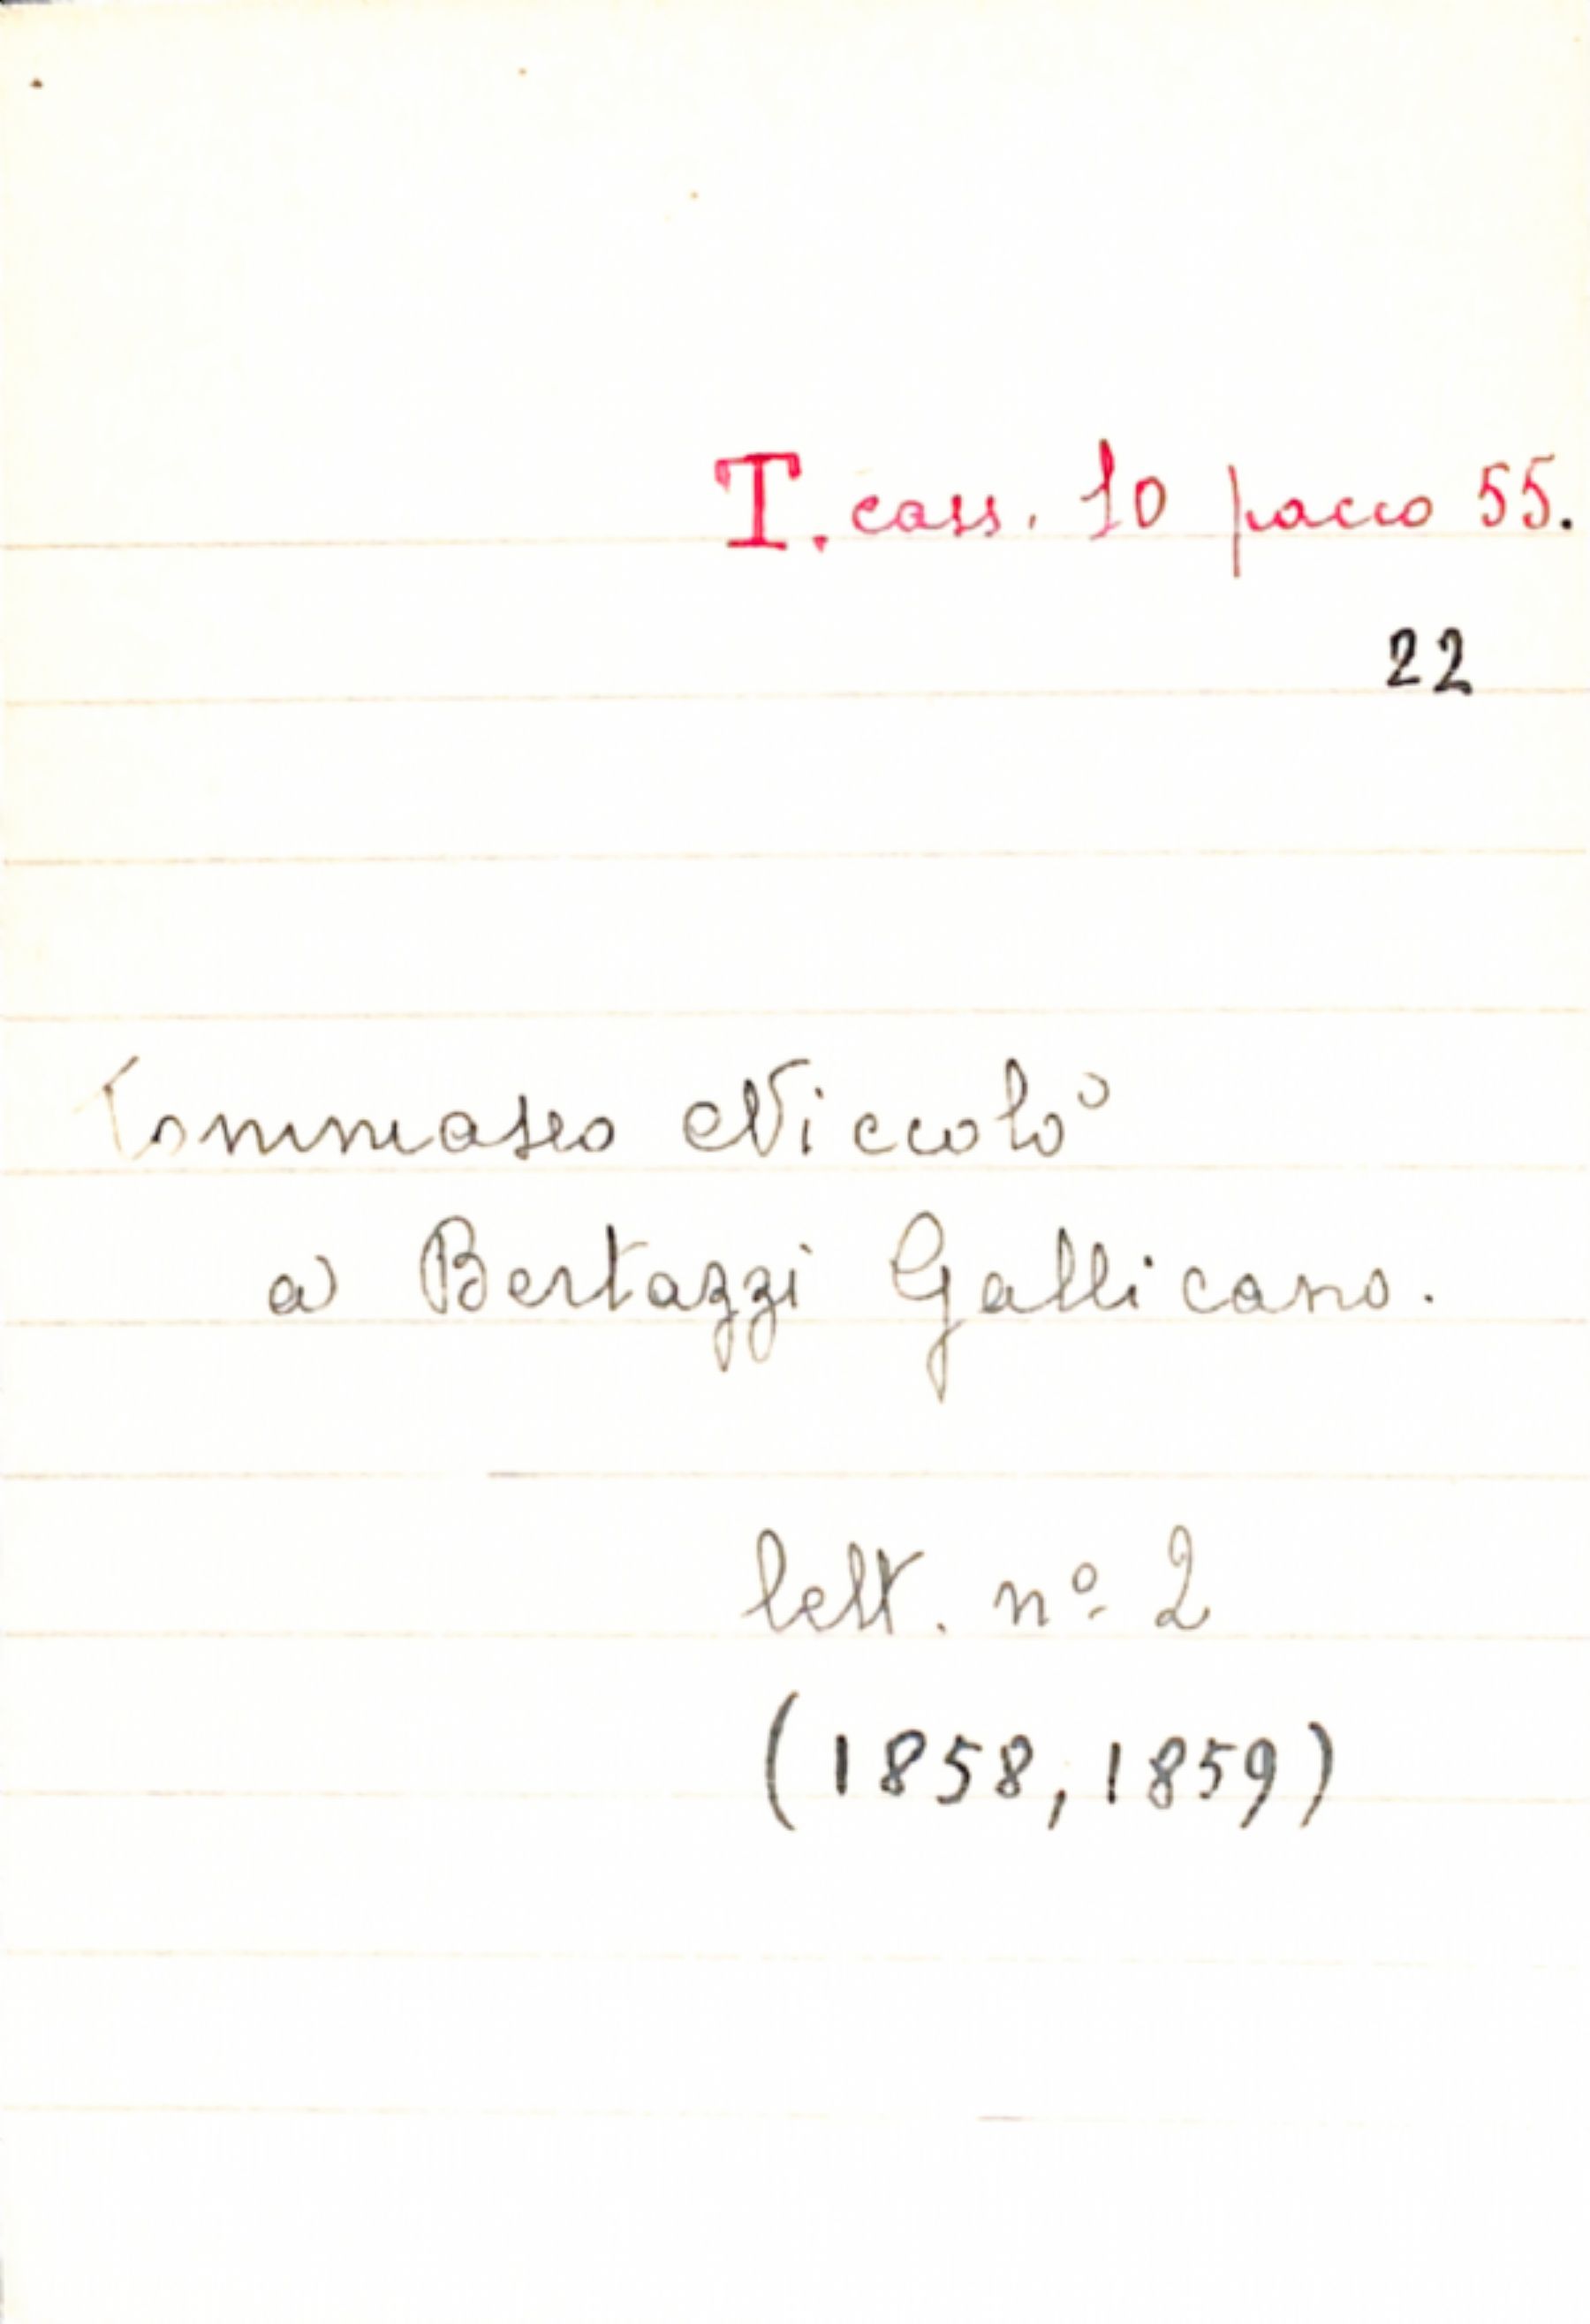 T. cass. 10 pacco 55.
22
Tommaseo Niccolò
a Bertazzi Gallicano.
lett. nº 2
(1858, 1859)